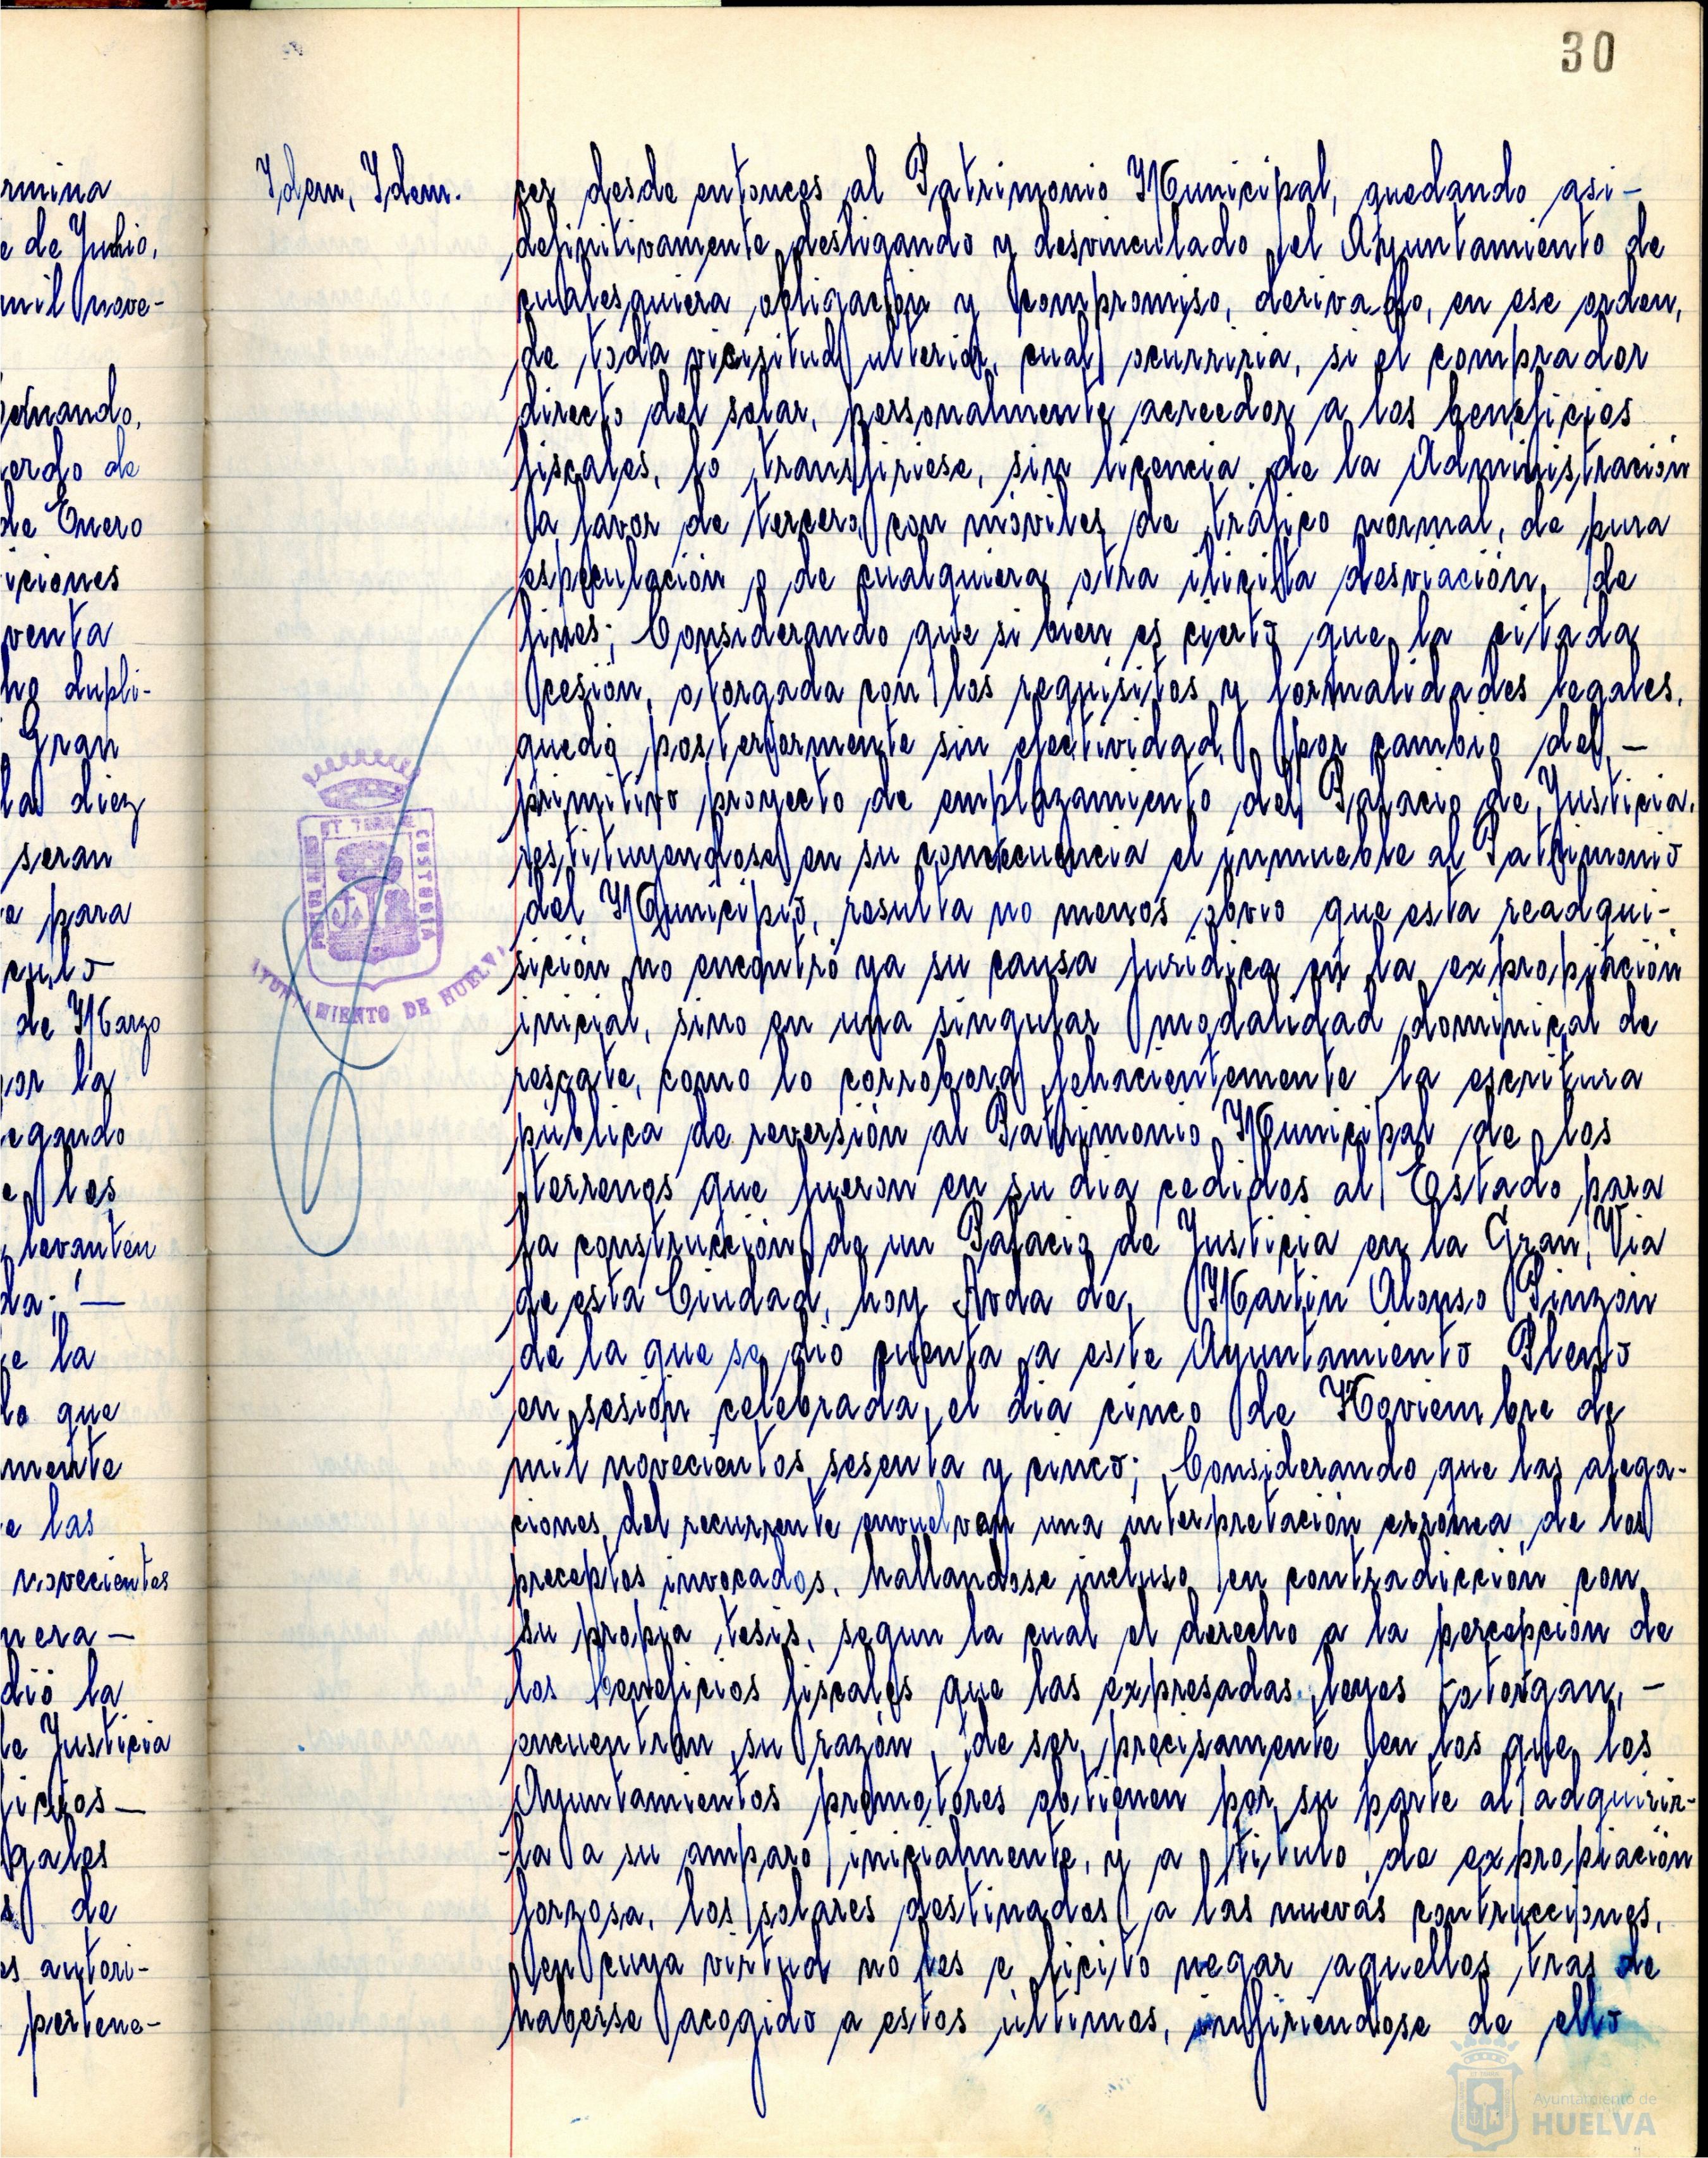 30
Idem, Idem.
cer desde entonces al Patrimonio Municipal, quedando asi-
definitivamente desligando y desvinculado el Ayuntamiento de
cualesquiera obligación y compromiso, derivado, en ese orden,
de toda vicisitud ulterior, cual ocurriria, si el comprador
directo del solar, personalmente acreedor a los beneficios
fiscales, lo transfiriese, sin licencia de la Administración
a favor de tercero, con móviles de tráfico normal, de pura
especulación o de cualquiera otra ilicita desviación, de
fines; Considerando que si bien es cierto que la citada
cesión, otorgada con los requisitos y formalidades legales,
quedó posteriormente sin efectividad, por cambio del -
primitivo proyecto de emplazamiento del Palacio de Justicia,
restituyendose en su consecuencia el inmueble al Patrimonio
del Municipio, resulta no menos obvio que esta readqui-
sición no encontró ya su causa juridica en la expropiación
inicial, sino en una singular modalidad dominical de
rescate, como lo corrobora fehacientemente la escritura
pública de reversión al Patrimonio Municipal de los
terrenos que fueron en su dia cedidos al Estado para
la construcción de un Palacio de Justicia en la Gran Via
de esta Ciudad, hoy Avda de Martin Alonso Pinzón
de la que se dió cuenta a este Ayuntamiento Pleno
en sesión celebrada el dia cinco de Noviembre de
mil novecientos sesenta y cinco; Considerando que las alega-
ciones del recurrente envuelven una interpretación errónea de los
preceptos invocados, hallandose incluso en contradicción con
su propia tesis, segun la cual el derecho a la percepción de
los beneficios fiscales que las expresadas leyes otorgan, -
encuentran su razón de ser, precisamente en los que los
Ayuntamientos promotores obtienen por su parte al adquirir-
la a su amparo inicialmente, y a titulo de expropiación
forzosa, los solares destinados a las nuevas contrucciones,
en cuya virtud no les e licito negar aquellos tras de
haberse acogido a estos últimos, infiriendose de ello
AYUNTAMIENTO DE HUELVA
rmina
e de Junio,
mil nove-
ernando,
erdo de
de Enero
iciones
venta
ho dupli-
Gran
la diez
seran
e para
culo
de Marzo
por la
egando
e los
levanten
da; -
e la
lo que
mente
e las
novecientos
nera -
dió la
de Justicia
icios -
gales
s de
es autori-
pertene-
Ayuntamiento de
HUELVA